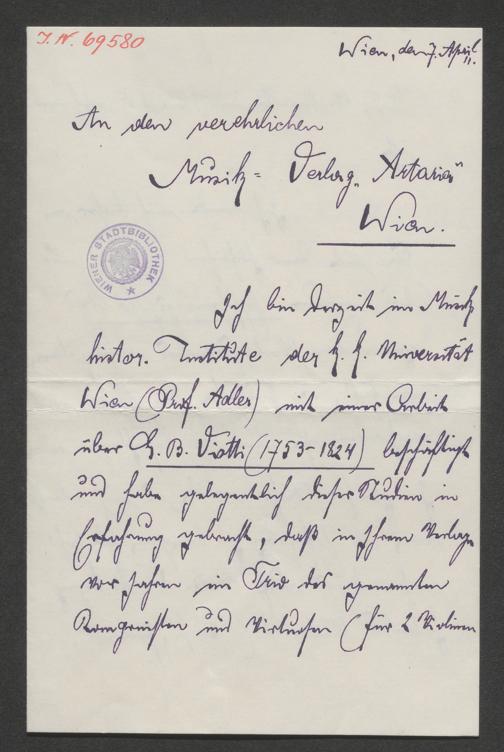 I. N. 69580
Wien, den 7. April 11.
An den verehrlichen
Musik- Verlag „Artaria"
Wien.
WIENER STADTBIBLIOTHEK
Ich bin derzeit im Musik
histor. Institute der k. k. Universität
Wien (Prof. Adler) mit einer Arbeit
über G. B. Viotti (1753-1824) beschäftigt
und habe gelegentlich dieser Studien in
Erfahrung gebracht, daß in Ihrem Verlage
vor Jahren ein Trio des genannten
Komponisten und Virtuosen (für 2 Violinen